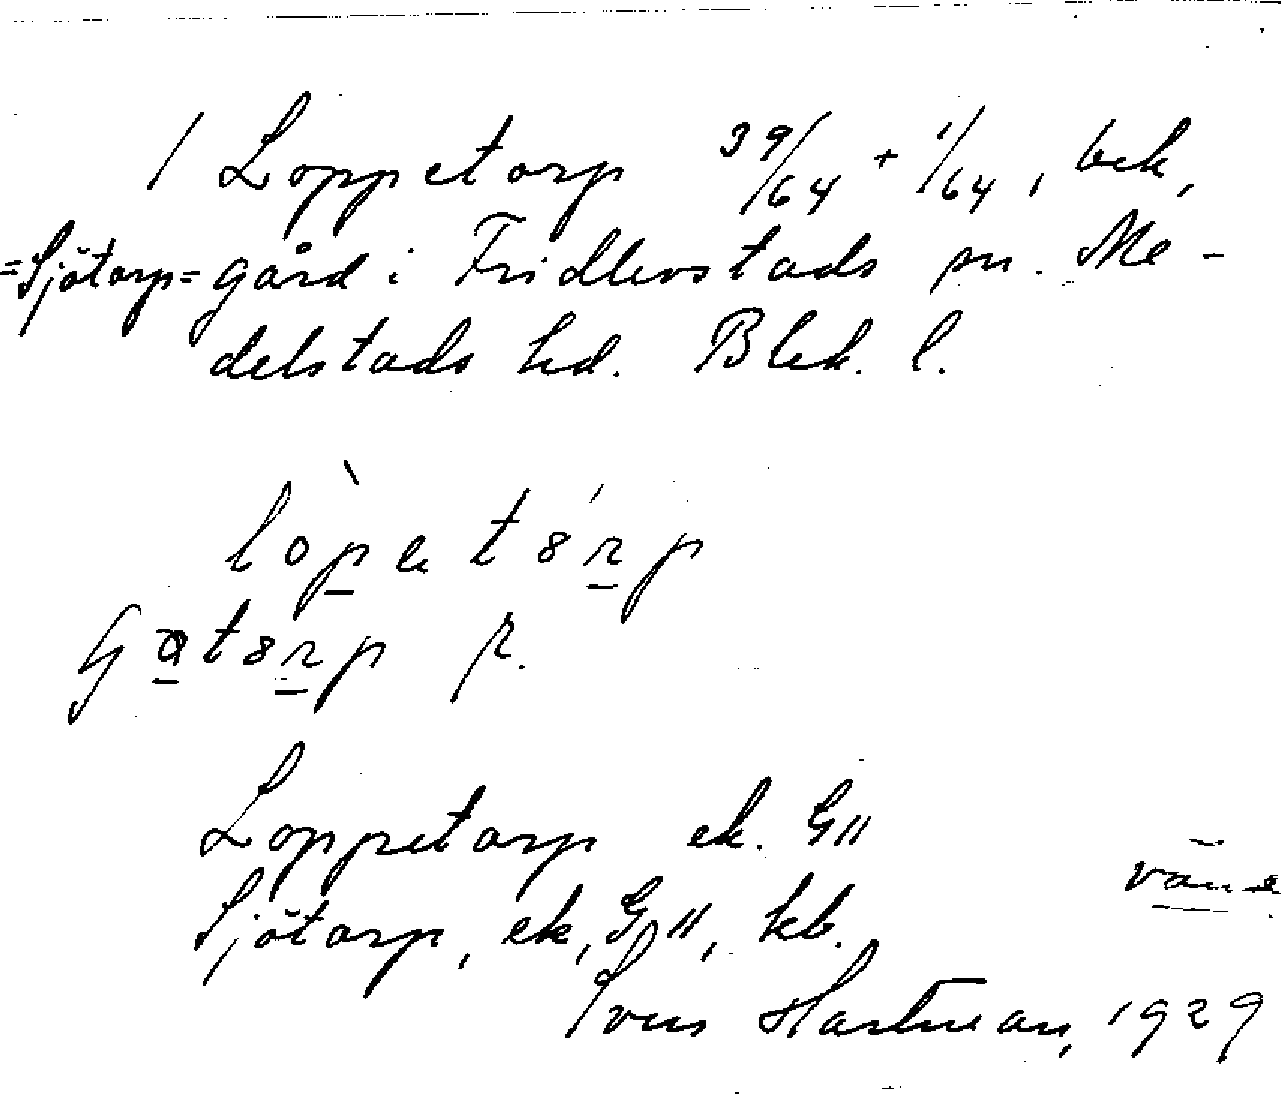 1 Loppetorp 39/64 + 1/64, bek,
=Sjötorp= gård i Fridlevstads sn. Me-
delstads hd. Blek. l.
lòpetórp
r.
Loppetorp ek. GII
Sjötorp, ek, GII, kb.
Sven Hartman, 1929